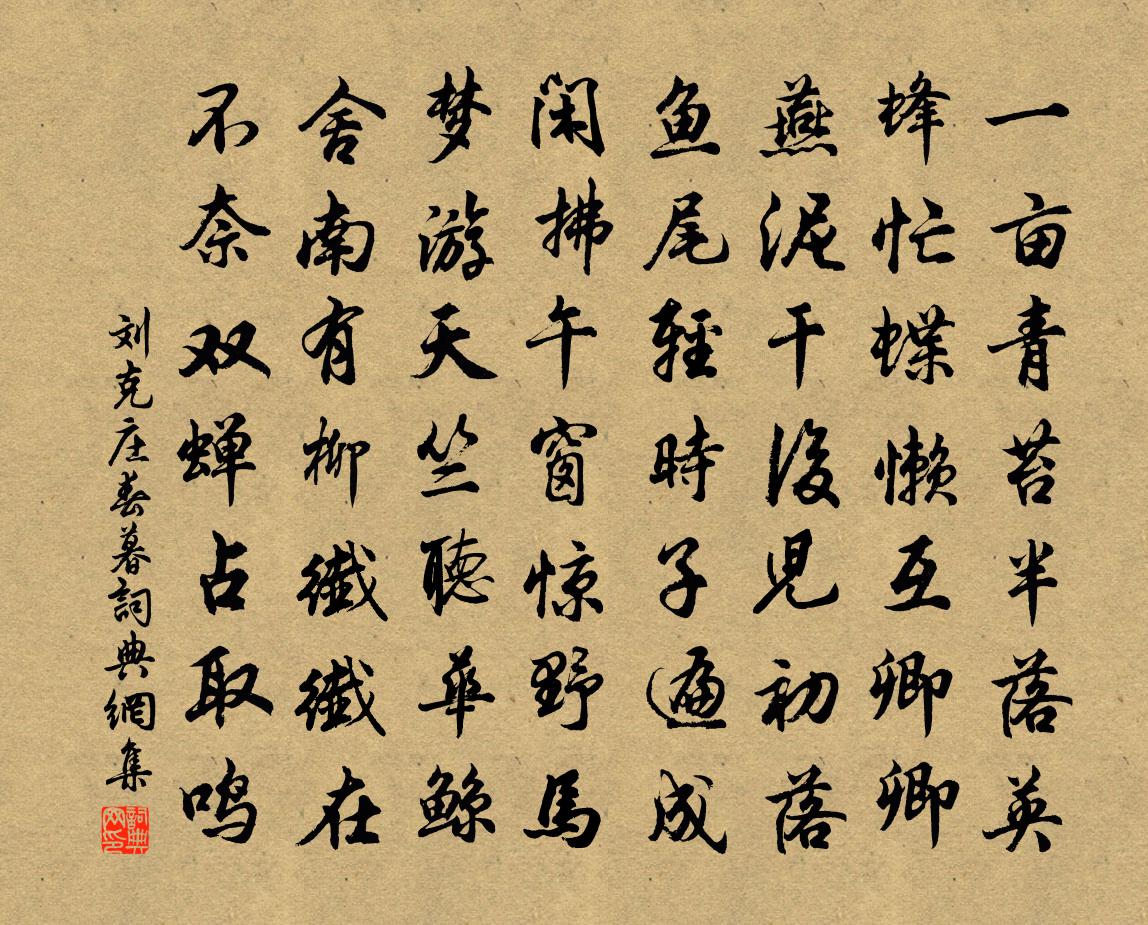 一亩青苔半落英
蜂忙蝶懒互卿卿
燕泥干後児初落
鱼尾輕時子遍成
闲拂午窗惊野馬
梦游天竺聴華鲸
舍南有柳纎纎在
不奈双蝉占取鸣
刘克庄春暮詞典網集
詞典网印